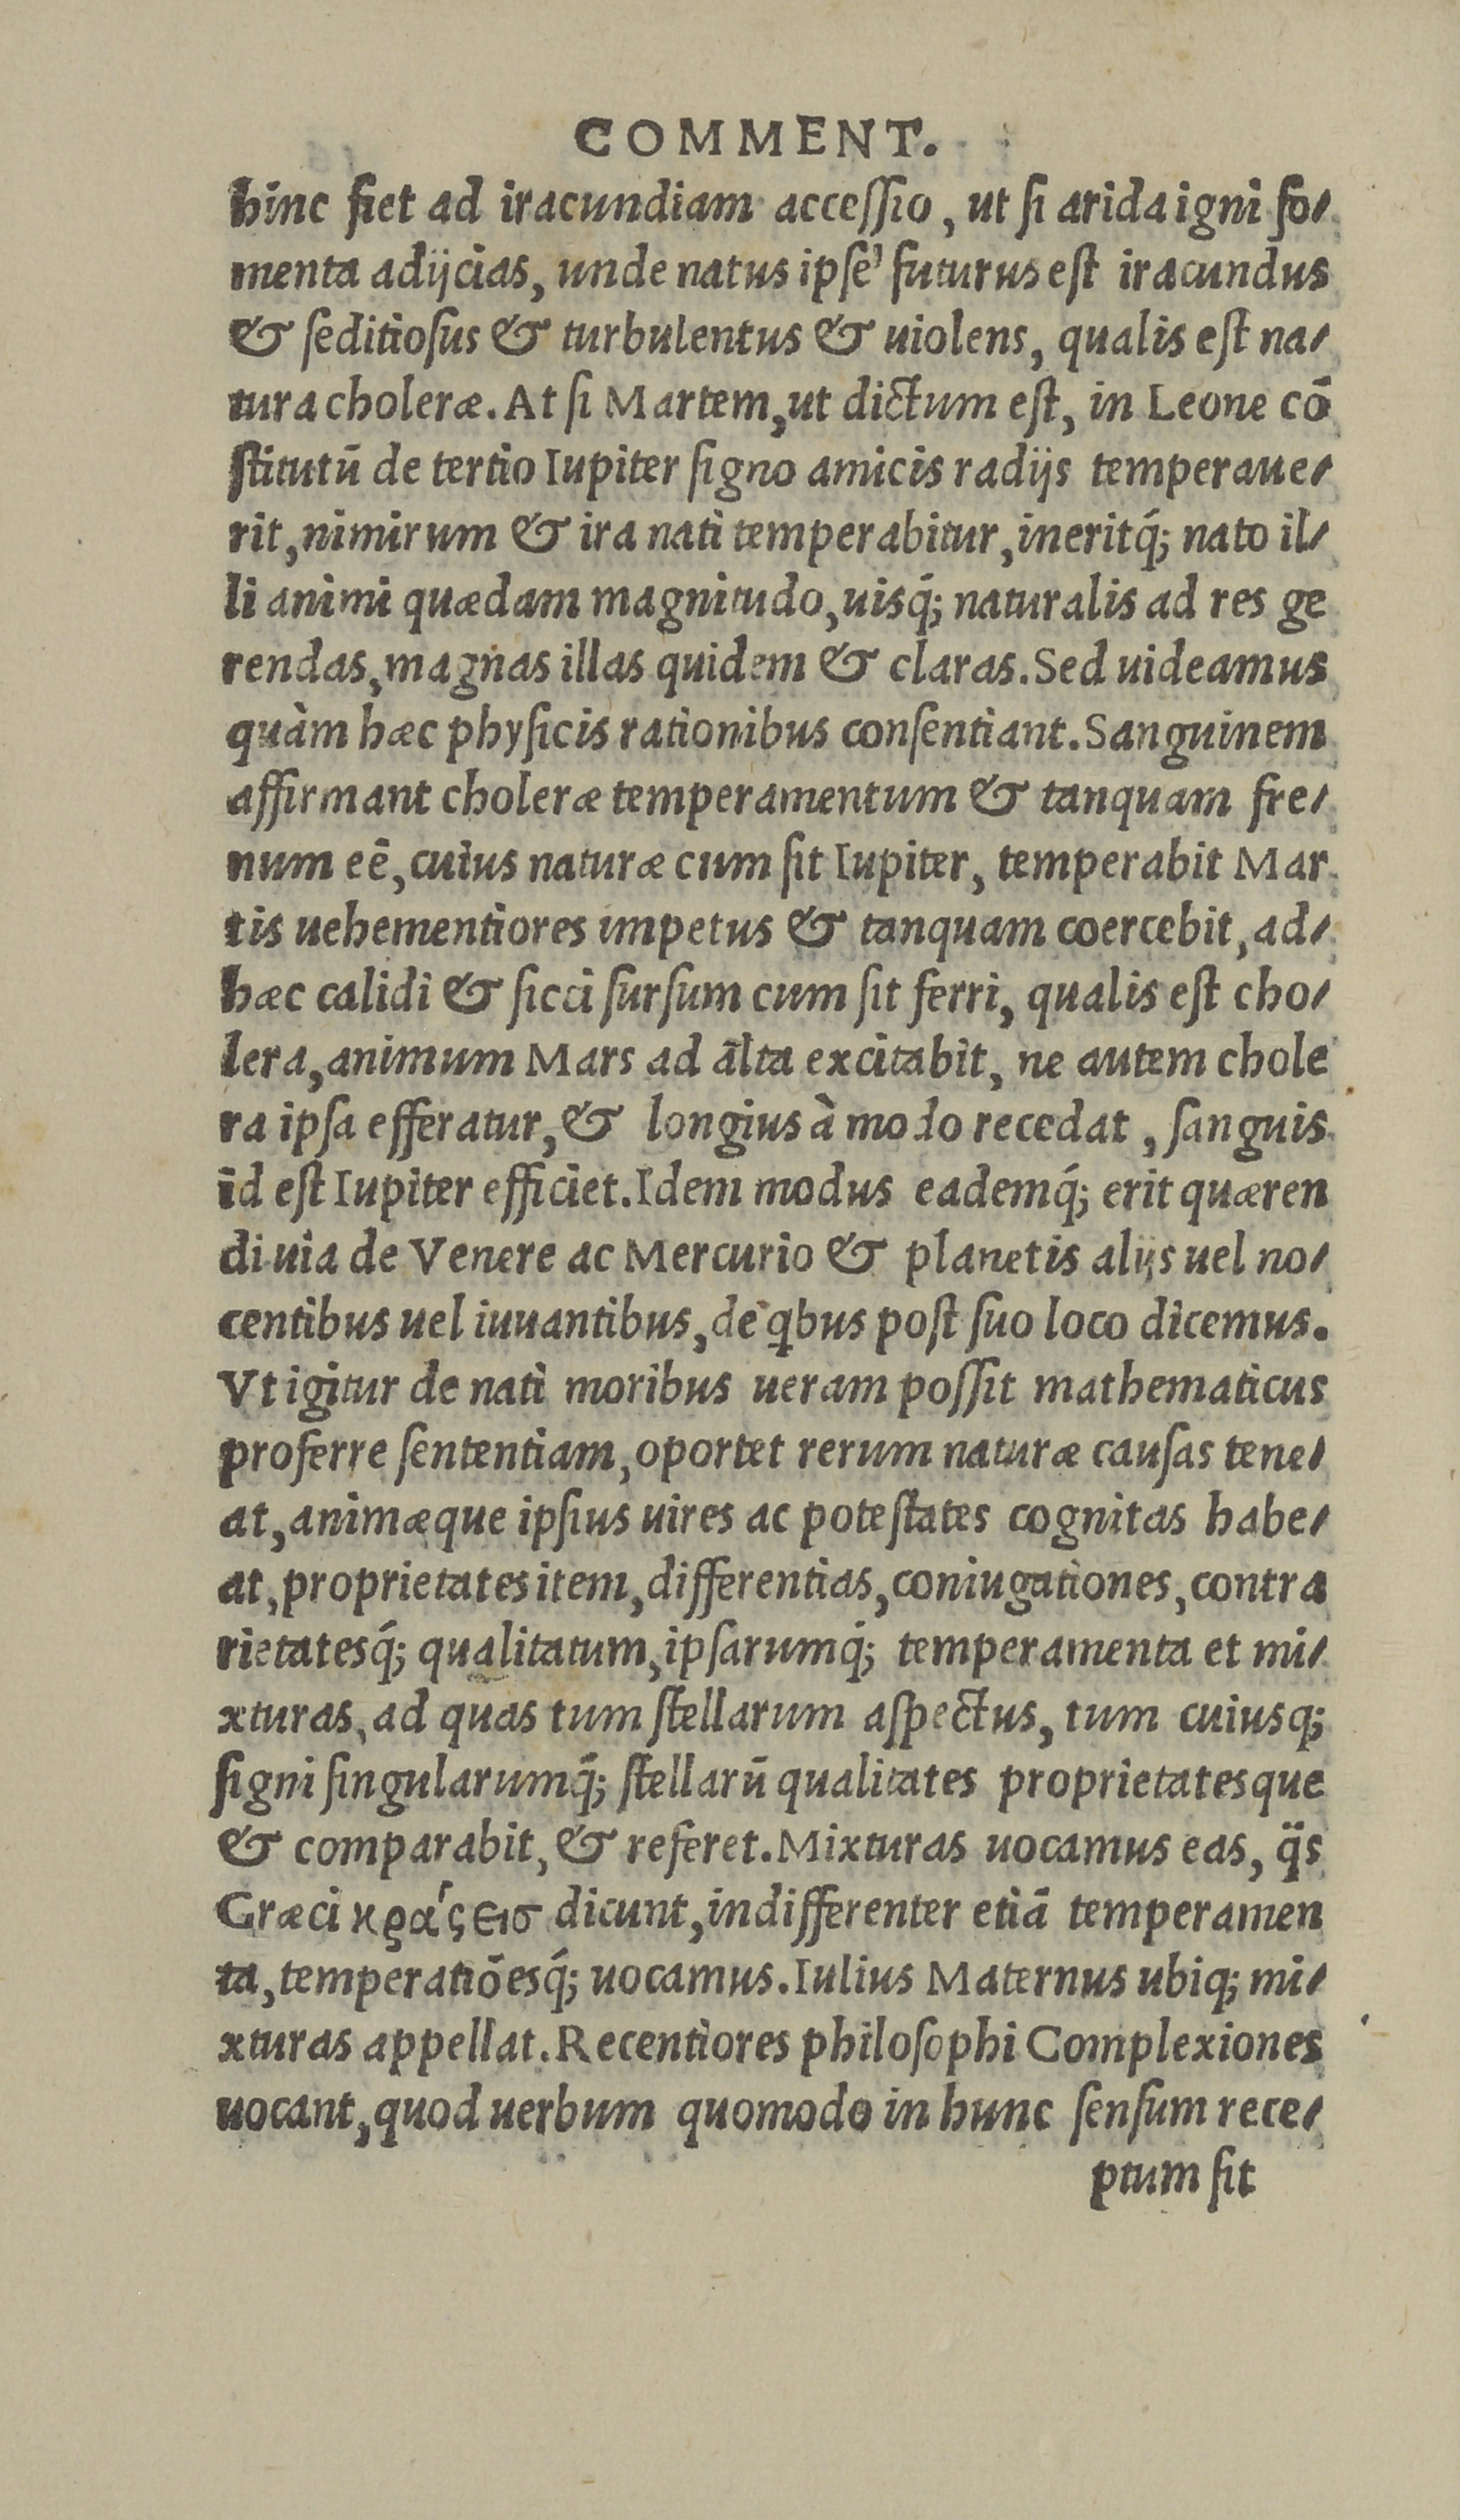 COMMENT.
hinc fiet ad iracundiam accessio, ut si arida igni fo-
menta adijcias, unde natus ipse futurus est iracundus
& seditiosus & turbulentus & uiolens, qualis est na-
tura choleræ. At si Martem, ut dictum est, in Leone cō
stitutū de tertio Iupiter signo amicis radijs temperaue-
rit, nimirum & ira nati temperabitur, ineritq́; nato il-
li animi quædam magnitudo, uisq́; naturalis ad res ge
rendas, magnas illas quidem & claras. Sed uideamus
quàm hæc physicis rationibus consentiant. Sanguinem
affirmant choleræ temperamentum & tanquam fre-
num eē, cuius naturæ cum sit Iupiter, temperabit Mar
tis uehementiores impetus & tanquam coercebit, ad-
hæc calidi & sicci sursum cum sit ferri, qualis est cho-
lera, animum Mars ad alta excitabit, ne autem chole
ra ipsa efferatur, & longius à modo recedat, sanguis
id est Iupiter efficiet. Idem modus eademq́; erit quæren
di uia de Venere ac Mercurio & planetis alijs uel no-
centibus uel iuuantibus, de qbus post suo loco dicemus.
Vt igitur de nati moribus ueram possit mathematicus
proferre sententiam, oportet rerum naturæ causas tene-
at, animæque ipsius uires ac potestates cognitas habe-
at, proprietates item, differentias, coniugationes, contra
rietatesq́; qualitatum, ipsarumq́; temperamenta et mi-
xturas, ad quas tum stellarum aspectus, tum cuiusq;
signi singularumq́; stellarū qualitates proprietatesque
& comparabit, & referet. Mixturas uocamus eas, q̈s
Græci κράσεισ dicunt, indifferenter etiā temperamen
ta, temperatiōesq́; uocamus. Iulius Maternus ubiq; mi-
xturas appellat. Recentiores philosophi Complexiones
uocant, quod uerbum quomodo in hunc sensum rece-
ptum sit